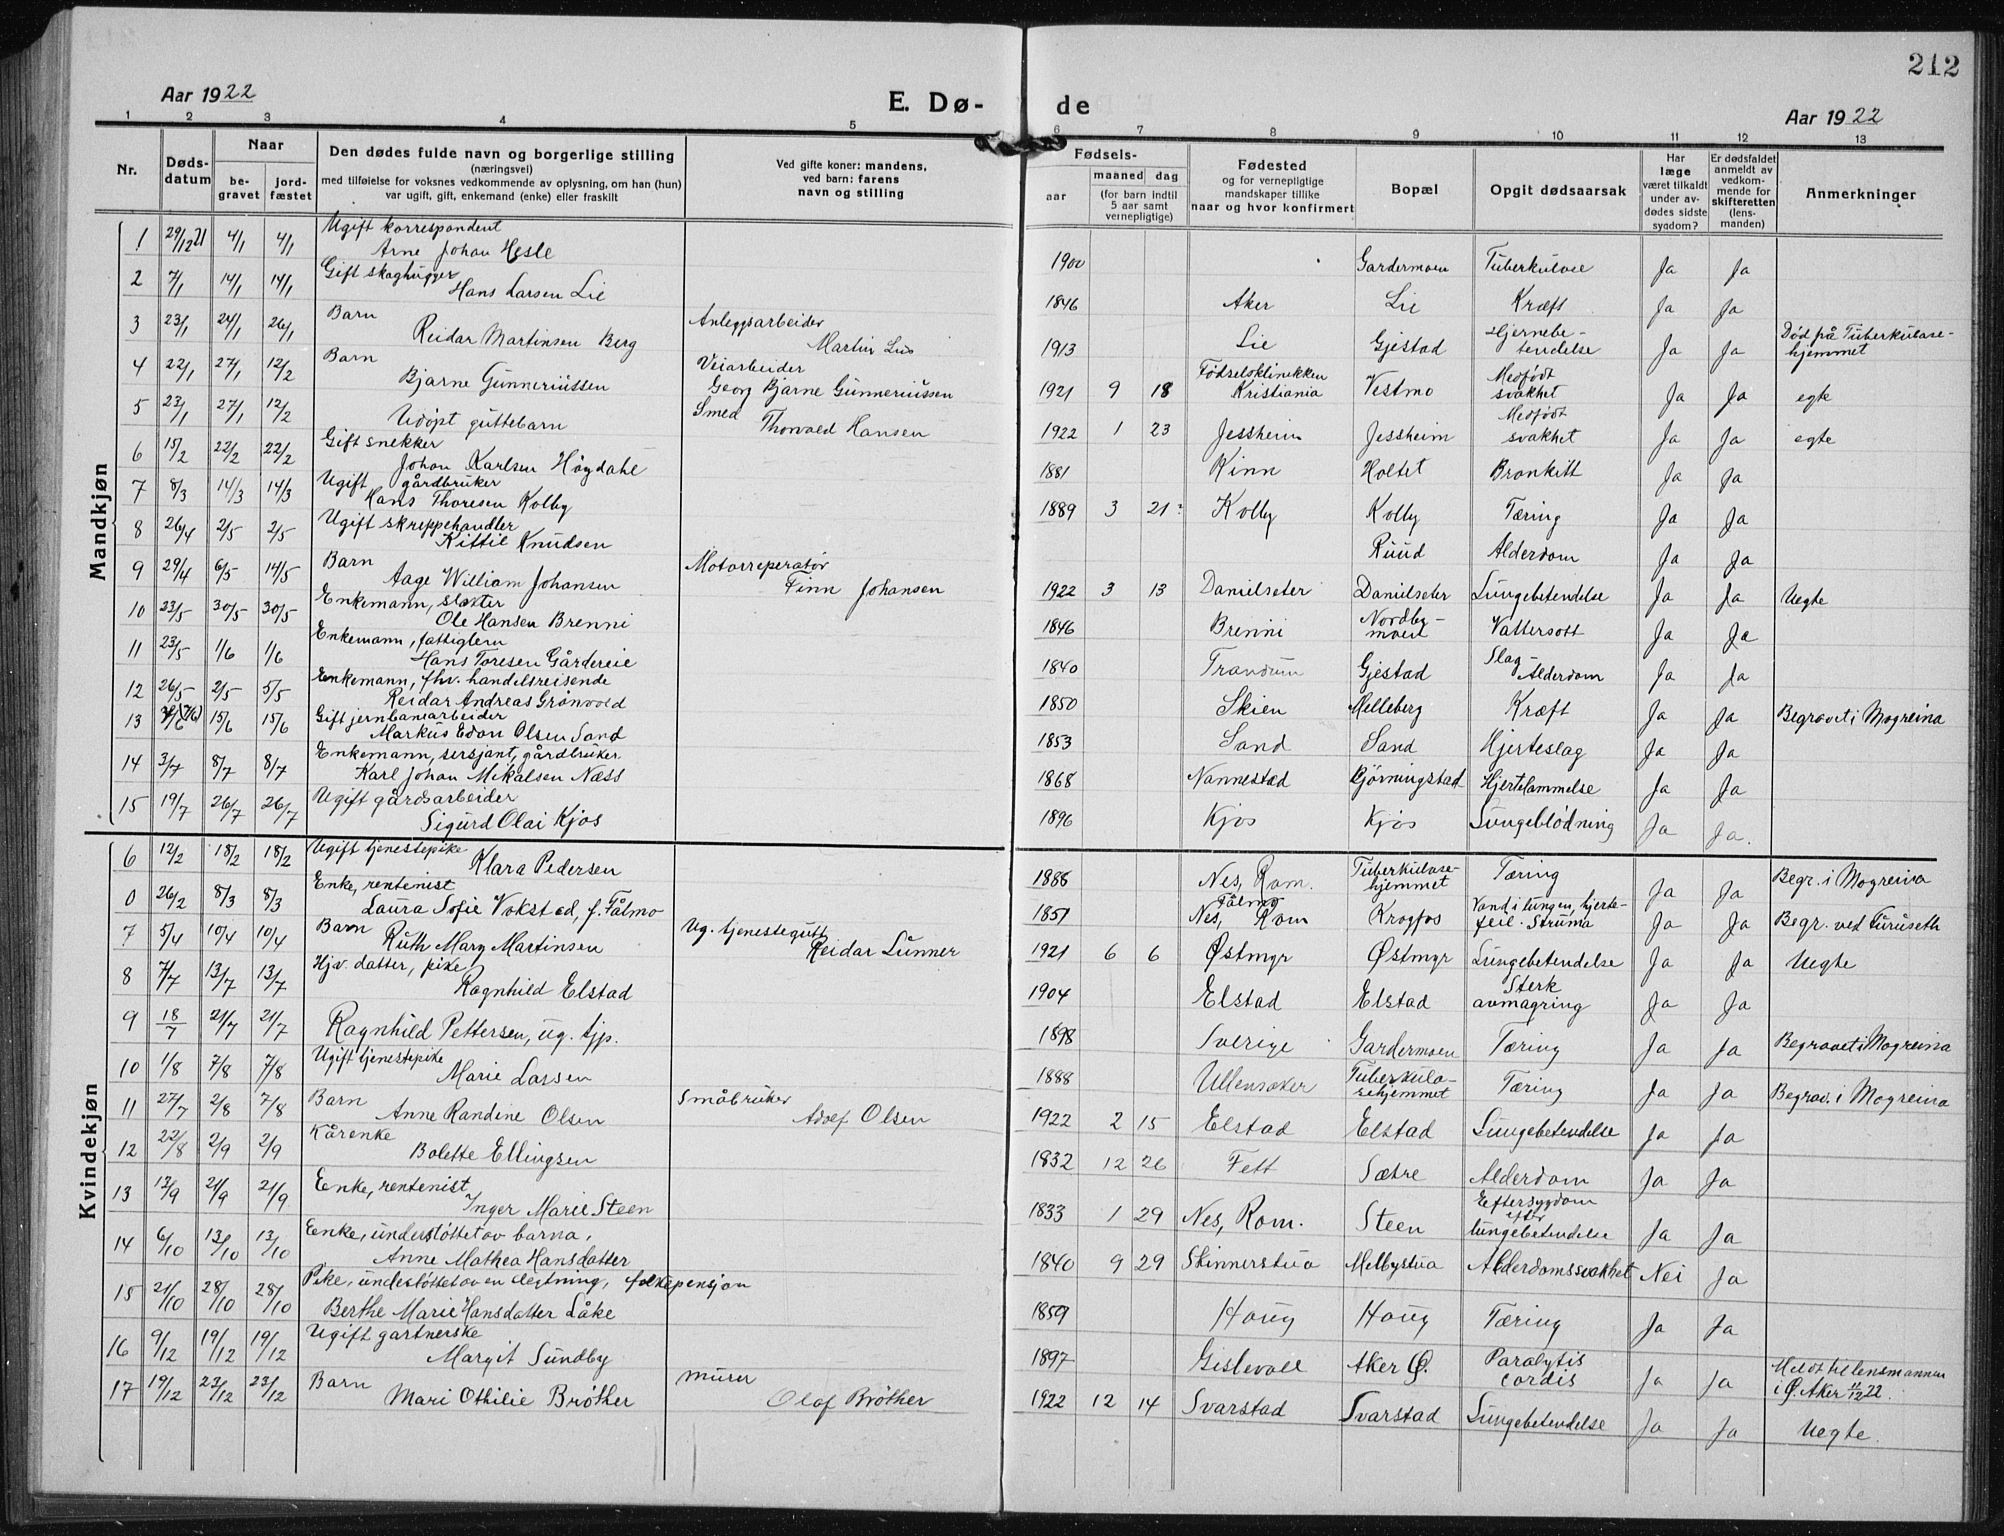 212
Aar 1922
E. Dø-
de
Aar 1922
1 2 3 4 5 6 7 8 9 10 11 12 13
Nr.
Dødsdatum
Naar
begravet
jordfæstet
Den dødes fulde navn og borgerlige stilling
(næringsvei)
med tilføielse for voksnes vedkommende av oplysning, om han (hun)
var ugift, gift, enkemand (enke) eller fraskilt
Ved gifte koner: mandens,
ved barn: farens
navn og stilling
Fødsels-
aar
maaned dag
(for barn indtil
5 aar samt
vernepligtige)
Fødested
og for vernepligtige
mandskaper tillike
naar og hvor konfirmert
Bopæl
Opgit dødsaarsak
Har
læge
været tilkaldt
under avdødes sidste
sygdom?
Er dødsfaldet
anmeldt av
vedkommende for
skifteretten
(lensmanden)
Anmerkninger
Mandkjøn
1 29/12 21 4/1 4/1 Ugift korrespondent
Arne Johan Hesle 1900 Gardermoen Tuberkulose Ja Ja
2 7/1 14/1 14/1 Gift skoghugger
Hans Larsen Lie 1846 Aker Lie Kræft Ja Ja
3 23/1 24/1 26/1 Barn Anleggsarbeider
Reidar Martinsen Berg Martin 1913 Lie Gjestad Hjernebetendelse Ja Ja Død på Tuberkulosehjemmet
4 22/1 27/1 12/2 Barn Veiarbeider
Bjarne Gunneriussen Georg Bjarne Gunneriussen 1921 9 18 Fødselsklinikken Kristiania Vestmo Medfødt svakhet Ja Ja egte
5 23/1 27/1 12/2 Udøpt guttebarn Smed
Thorvald Hansen 1922 1 23 Jessheim Jessheim Medfødt svakhet Ja Ja egte
6 15/2 22/2 22/2 Gift snekker
Johan Karlsen Høgdahl 1881 Kinn Holtet Bronkitt Ja Ja
7 8/3 14/3 14/3 Ugift gårdbruker
Hans Thoresen Kolby 1889 3 21 Kolby Kolby Tæring Ja Ja
8 26/4 2/5 2/5 Ugift skreppehandler
Kittil Knudsen Ruud Alderdom Ja Ja
9 29/4 6/5 14/5 Barn Motorreperatør
Aage William Johansen Finn Johansen 1922 3 13 Danielseter Danielseter Lungebetendelse Ja Ja Uegte
10 23/5 30/5 30/5 Enkemann, slakter
Ole Hansen Brenni 1846 Brenni Nordbymoen Vattersott Ja Ja
11 23/5 1/6 1/6 Enkemann, fattiglem
Hans Toresen Gårdereie 1840 Trandum Gjestad Slag - Alderdom Ja Ja
12 26/5 2/5 5/5 Enkemann, fhv. handelsreisende
Reidar Andreas Grønvold 1850 Skien Melleberg Kræft Ja Ja Begravet i Mogreina
13 15/6 15/6 Gift jernbanearbeider
Markus Edon Olsen Sand 1853 Sand Sand Hjerteslag Ja Ja
14 3/7 8/7 8/7 Enkemann, sersjant, gårdbruker
Karl Johan Mikalsen Næss 1868 Nannestad Bjørningstad Hjertelammelse Ja Ja
15 19/7 26/7 26/7 Ugift gårdsarbeider
Sigurd Olai Kjos 1896 Kjos Kjos Lungeblødning Ja Ja.
Kvindekjøn
6 12/2 18/2 18/2 Ugift tjenestepike
Klara Pedersen 1886 Nes, Rom. Tuberkulosehjemmet Tæring Ja Ja Begr. i Mogreina
0 26/2 8/3 8/3 Enke, rentenist
Laura Sofie Vokstad, f. Fålmo 1851 Fålmo Nes, Rom Krogfos Vand i lungen, hjertefeil. Struma Ja Ja Begr. ved Furuseth
7 5/4 10/4 10/4 Barn Ug. tjenestegutt
Ruth Mary Martinsen Reidar Lunner 1921 6 6 Østmyr Østmyr Lungebetendelse Ja Ja Uegte
8 7/7 13/7 13/7 Hjv. datter, pike
Ragnhild Elstad 1904 Elstad Elstad Sterk avmagring Ja Ja
9 18/7 21/7 21/7 Ragnhild Pettersen, ug. tjp. 1898 Sverige Gardermoen Tæring Ja Ja Begravet i Mogreina
10 1/8 7/8 7/8 Ugift tjenestepike
Marie Larsen 1888 Ullensaker Tuberkulosehjemmet Tæring Ja Ja Begrav. i Mogreina
11 27/7 2/8 7/8 Barn Småbruker
Anne Randine Olsen Adolf Olsen 1922 2 15 Elstad Elstad Lungebetendelse Ja Ja
12 22/8 2/9 2/9 Kårenke
Bolette Ellingsen 1832 12 26 Fett Sætre Alderdom Ja Ja
13 13/9 21/9 21/9 Enke, rentenist
Inger Marie Steen 1833 1 29 Nes, Rom. Steen Eftersygdom efter lungebetendelse Ja Ja
14 6/10 13/10 13/10 Enke, understøttet av barna,
Anne Mathea Hansdatter 1840 9 29 Skinnerstua Melbystua Alderdomssvakhet Nei Ja
15 21/10 28/10 28/10 Pike, undestøttet av en slegtning, folkepensjon
Berthe Marie Hansdatter Låke 1859 Houg Houg Tæring Ja Ja
16 9/12 19/12 19/12 Ugift gartnerske
Margit Sundby 1897 Gislevoll Aker Ø. Paralytis cordis Ja Ja Meldt til lensmannen i Ø. Aker 11/12 22.
17 19/12 23/12 23/12 Barn murer
Mari Othilie Brøther Olaf Brøther 1922 12 14 Svarstad Svarstad Lungebetendelse Ja Ja Uegte.